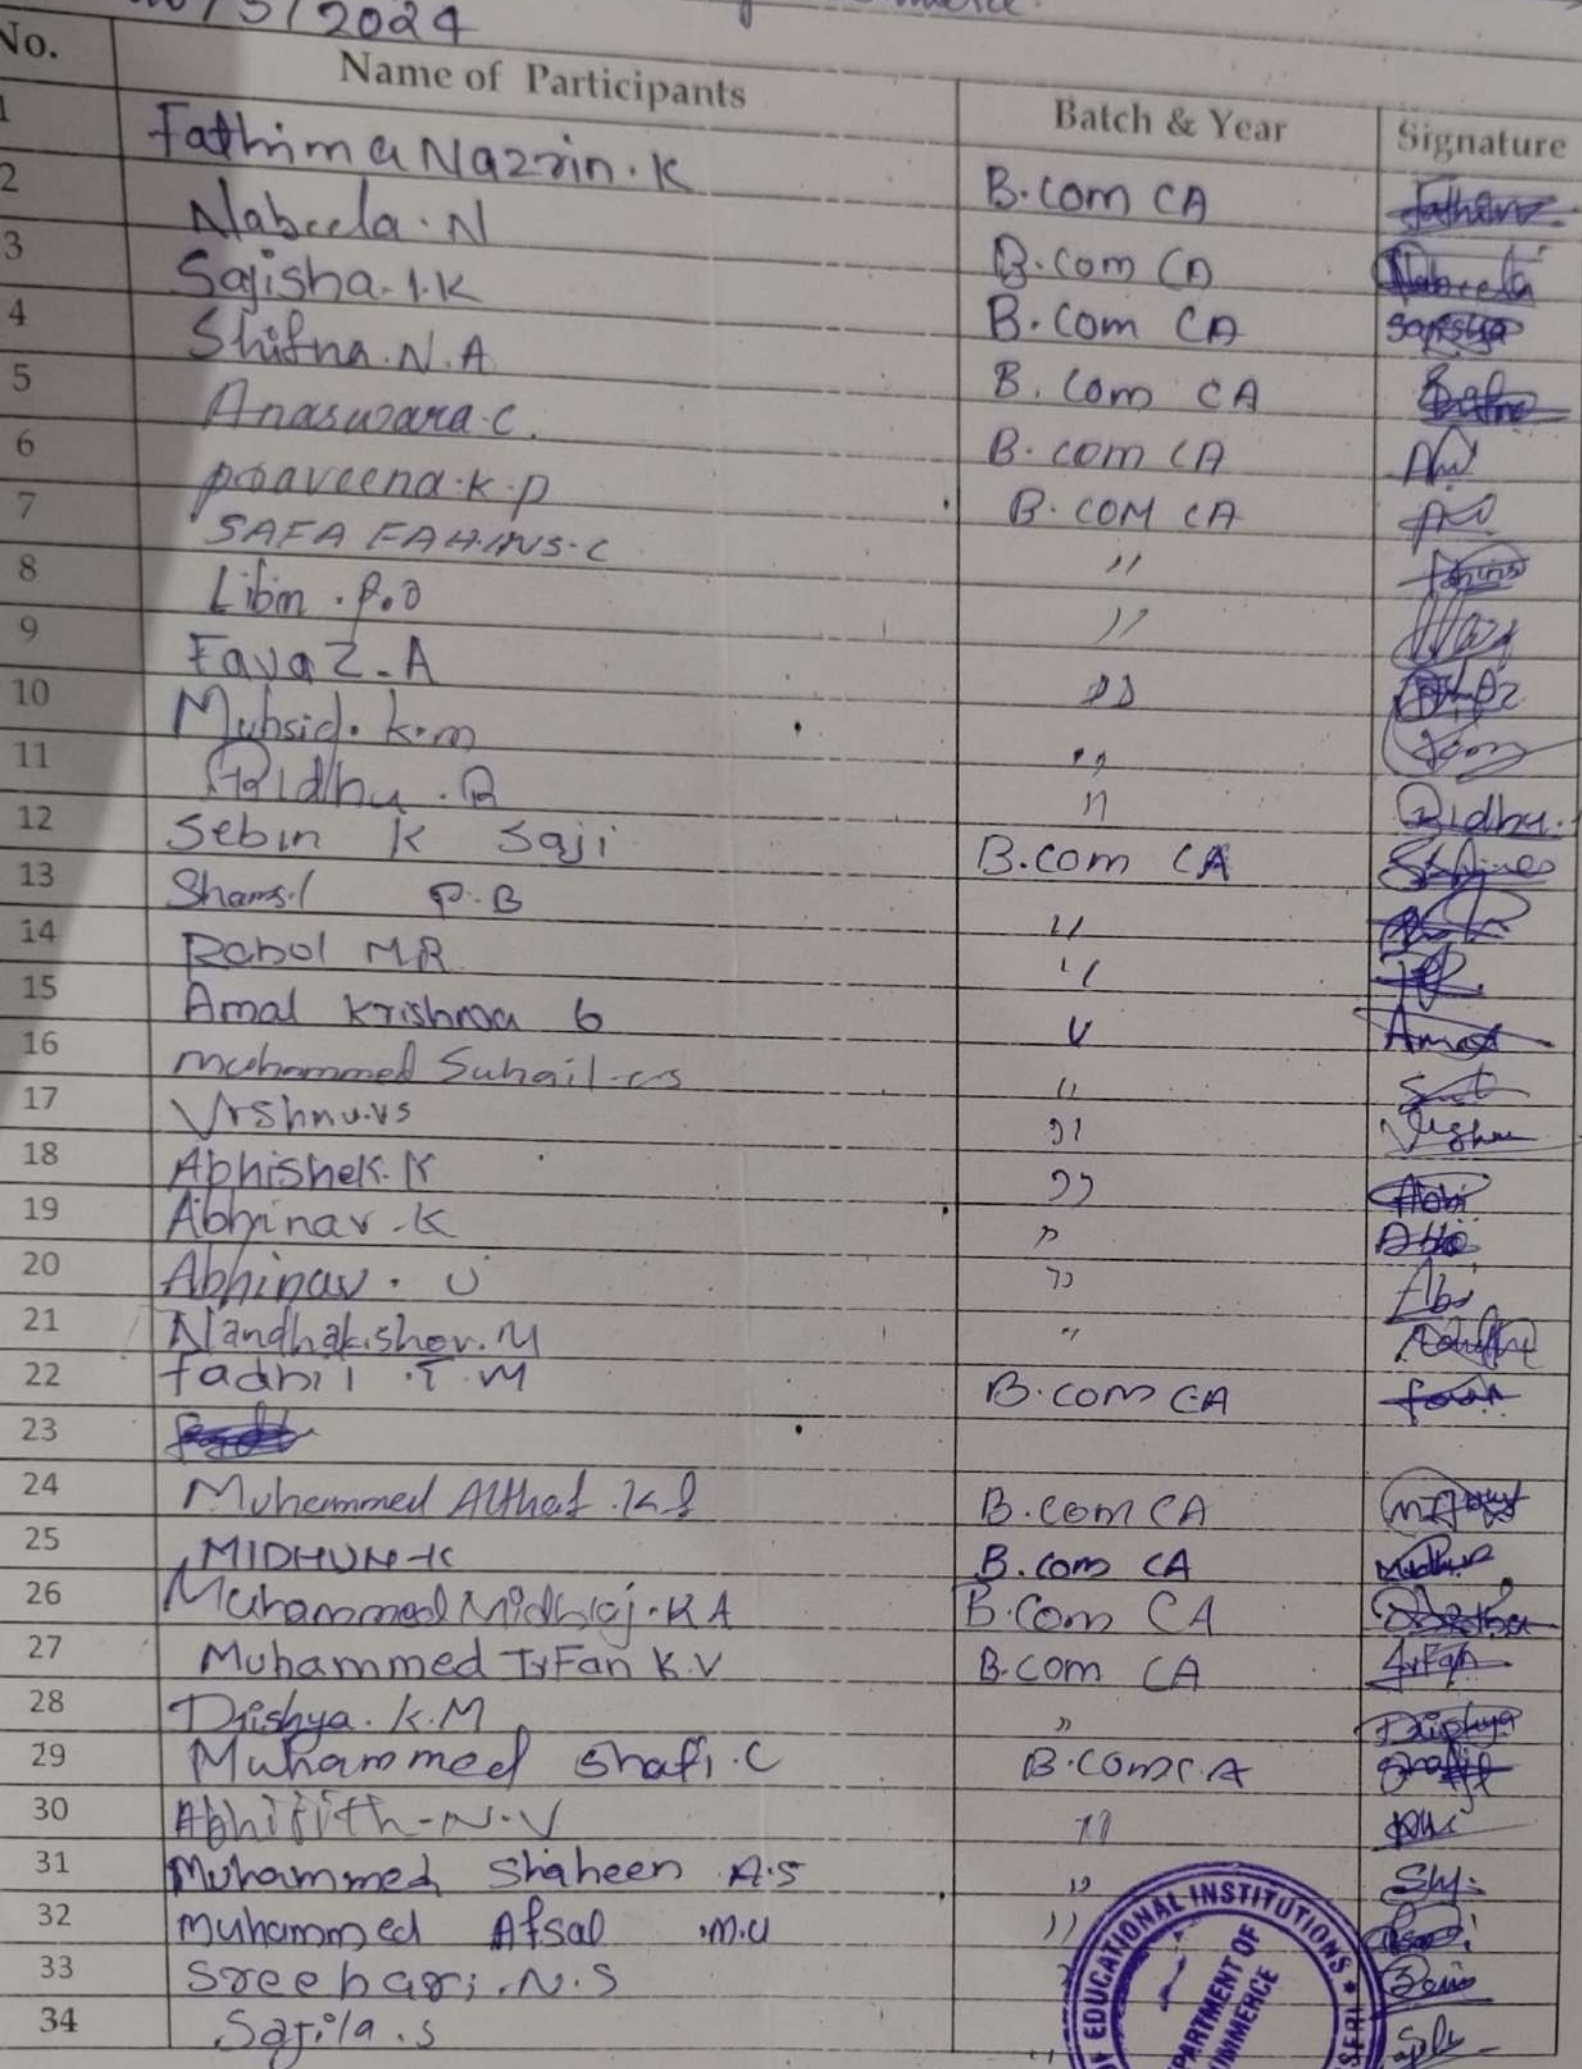 /3/2024
No. Name of Participants Batch & Year Signature
1 Fathima Nazrin.K B.com CA
2 Nabeela.N B.com CA Nabeela
3 Sajisha.I.K B.com CA Sajisha
4 Shifna.N.A B.com CA
5 Anaswara.C. B.com CA
6 praveena.k.p B.COM CA
7 SAFA FAHINS.C "
8 Libin.P.O "
9 Favaz.A "
10 Muhsid.k.m "
11 Ridhu.R " Ridhu.
12 Sebin K Saji B.com CA
13 Shamsil P.B "
14 Rahol MR "
15 Amal Krishna G " Amal
16 muhammed Suhail.cs "
17 Vishnu.vs " Vishnu
18 Abhishek.K " Abhi
19 Abhinav.K "
20 Abhinav.U " Abi
21 Nandhakishor.M "
22 fadhil.T.M B.com CA
23
24 Muhammed Althaf.K B.com CA
25 MIDHUN-K B.com CA Midhun
26 Muhammed Midhlaj.KA B.Com CA
27 Muhammed IrFan K.V B.com CA IrFan
28 Drishya.K.M " Drishya
29 Muhammed Shafi.C B.Com C.A
30 Abhijith-N.V "
31 Muhammed Shaheen A.S "
32 muhammed Afsal .M.U "
33 Sreehari.N.S
34 Sajila.S "
EDUCATIONAL INSTITUTIONS
DEPARTMENT OF
COMMERCE